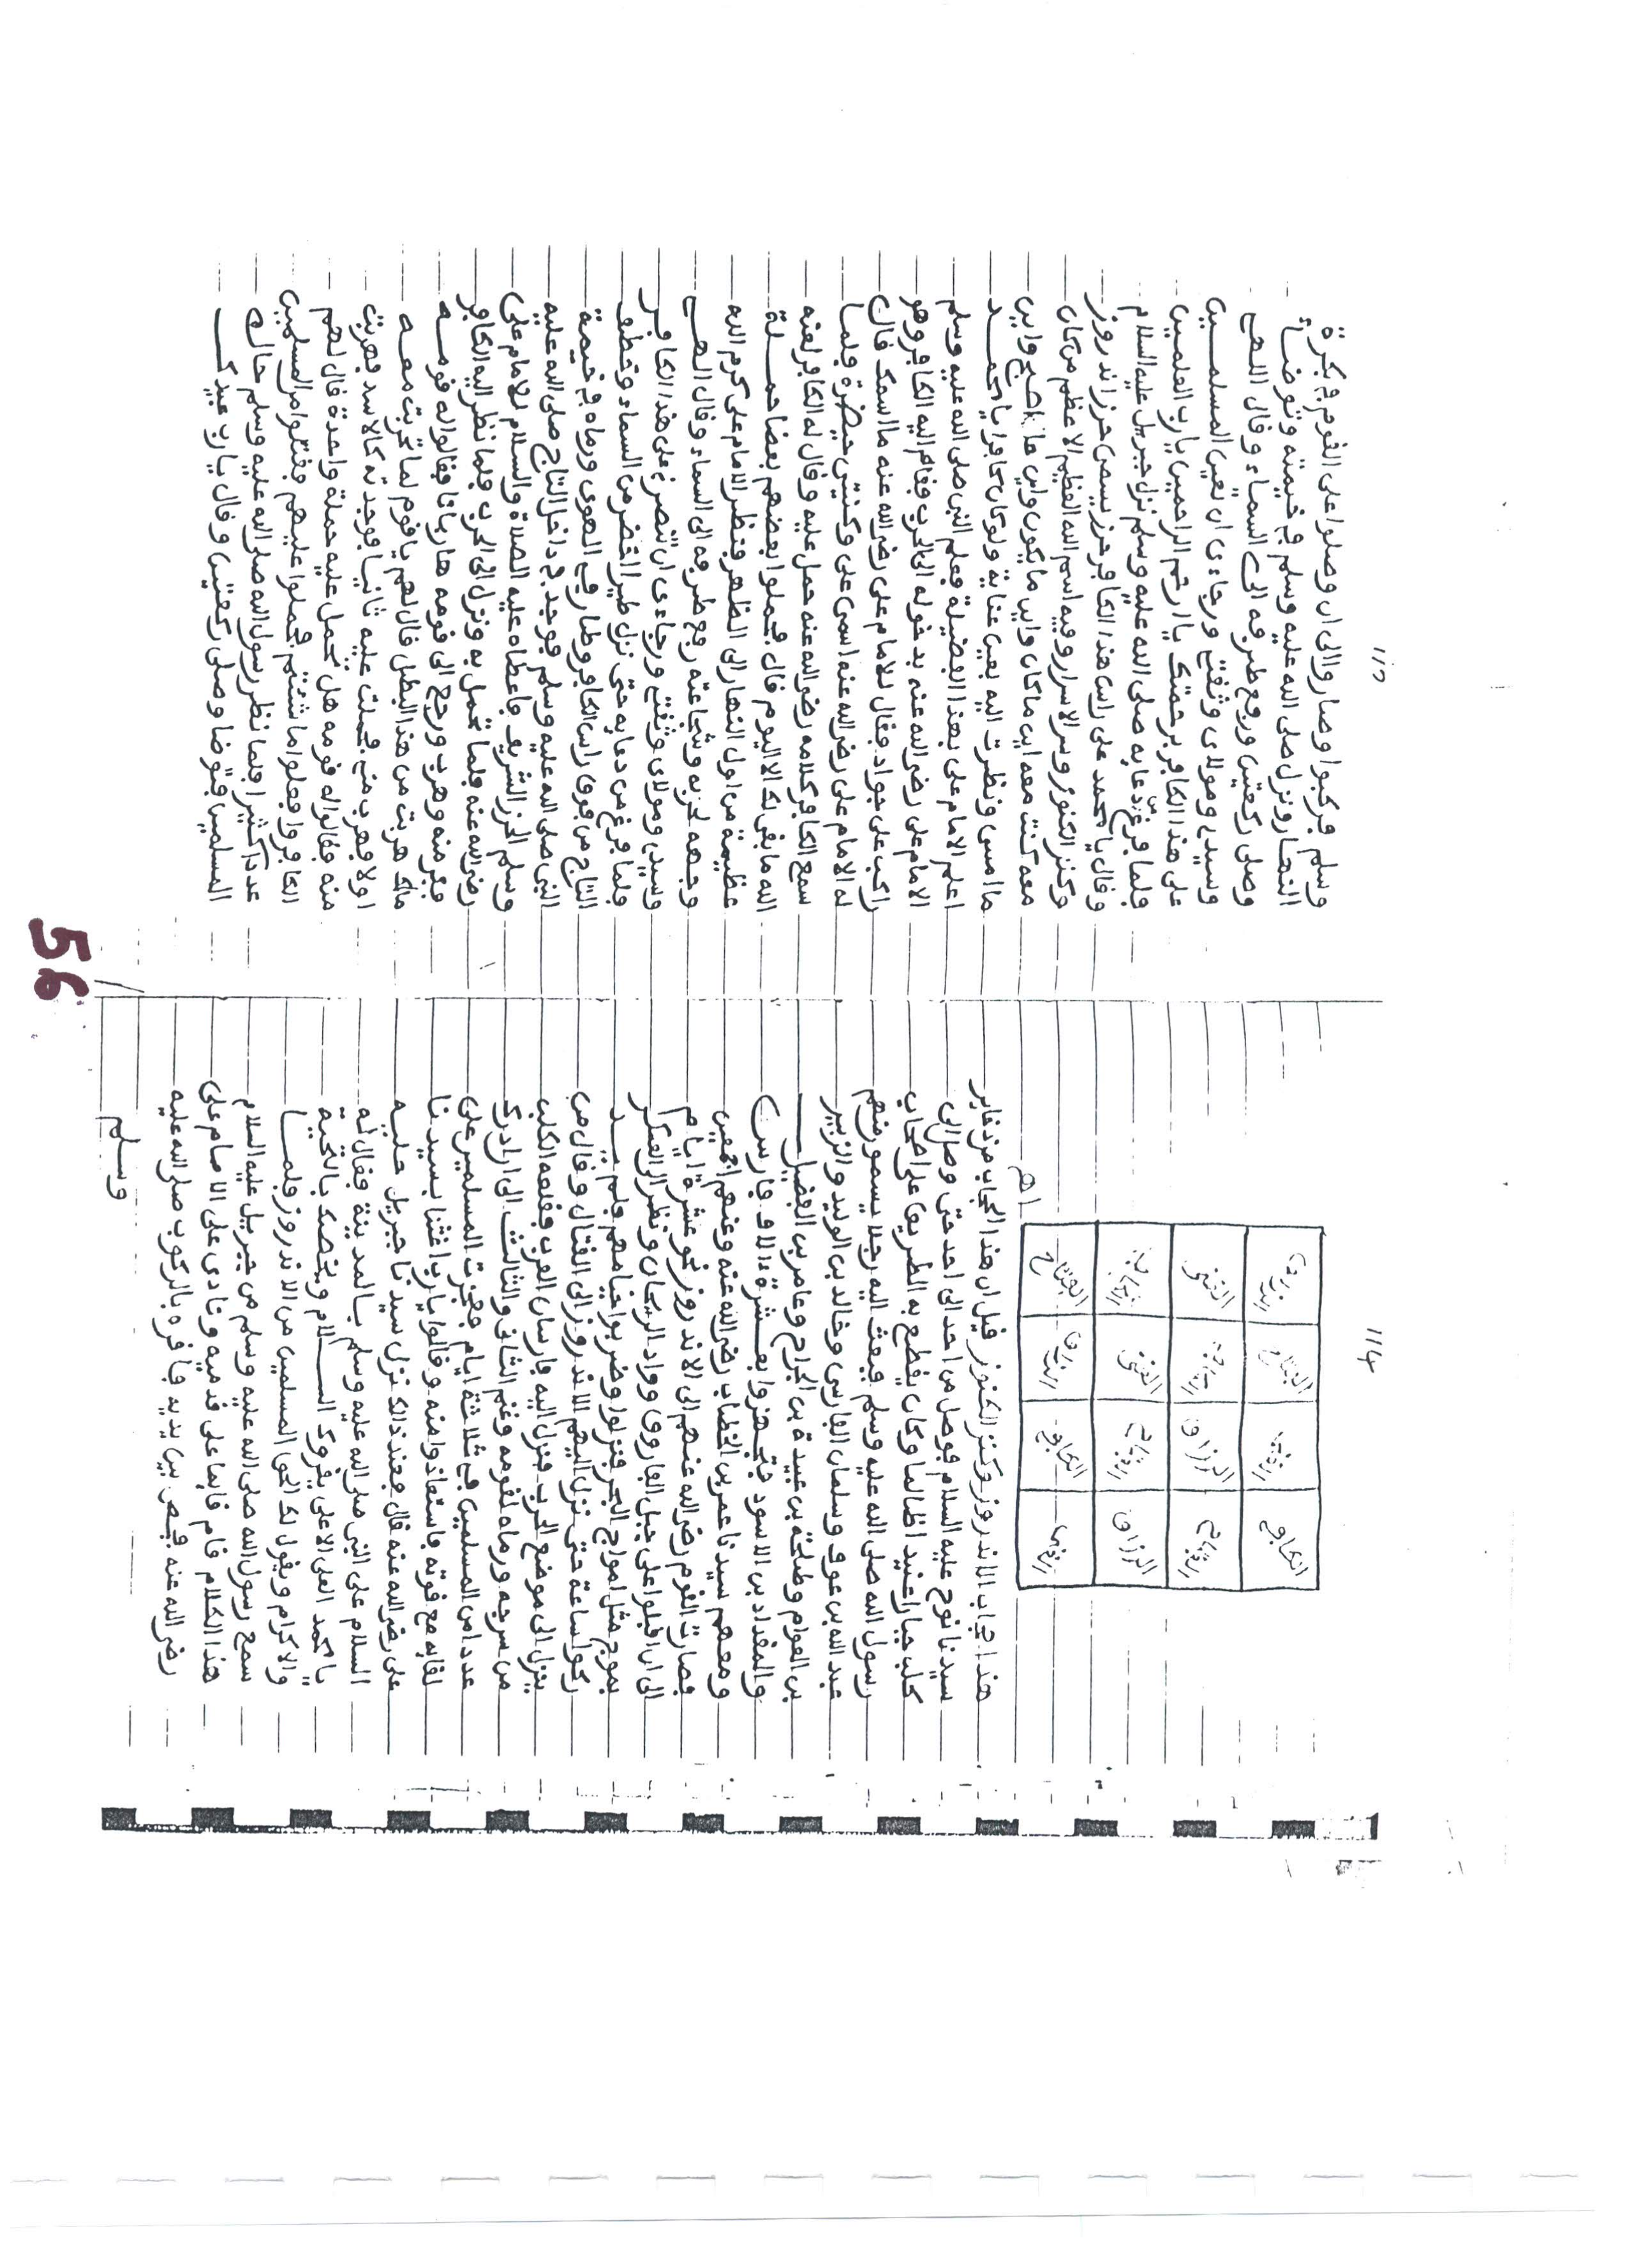 114
الكافي الفتاح
الرزاق الغني
الرزاق الغني
الكافي الفتاح
اهـ
هذا حجاب الاندروز وكنز الكنوز قيل ان هذا الحجاب من ذخاير
سيدنا نوح عليه السلام فوصل من احد الى احد حتى وصل الى
كلب جبارا عنيدا ظالما وكان يقطع به الطريق على اصحاب
رسول الله صلى الله عليه وسلم فبعث اليه رجلا يسمو منهم
عبد الله بن عوف وسلمان الفارسي وخالد بن الوليد والزبير
بن العوام وطلحة بن عبيدة بن الجراح وعامر بن الفضيل
والمقداد بن الاسود فتجهزوا بعشرة ءالاف فارس
ومعهم سيدنا عمر بن الخطاب رضي الله عنه وعنهم اجمعين
فصارت القوم رضي الله عنهم الى الاندروز نحو عشرة ايام
الى ان اقبلوا على جبل الفاروق وواد الريحان ونظر الى العسكر
بموج مثل امواج البحر فنزلوا وضربوا خيامهم فلم يــد
ركوا ساعة حتى نزل اليهم الاندروز الى القتال وقال من
ينزل الى موضع الحرب فنزل اليه فارسان العرب فقلعه الكلب
من سرجه ورماه لقومه وغنم الثاني والثالث الى ان ادرك
عددا من المسلمين في ثلاثة ايام فعجزت المسلمين على
لقايه مع قوته فاستعاذوا منه وقالوا يارب اغثنا بسيدنا
على رضي الله عنه قال فعند ذالك نزل سيدنا جبريل عليه
السلام على النبي صلى الله عليه وسلم بالمدينة فقال له
يا محمد العلي الاعلى يقروك السلام ويخصك بالتحية
والاكرام ويقول لك الحق المسلمين من الاندروز فلمــا
سمع رسول الله صلى الله عليه وسلم من جبريل عليه السلام
هذا الكلام قام قايما على قدميه ونادى على الامام على
رضي الله عنه فحضر بين يديه فافره بالركوب صلى الله عليه
وسلم
وسلم فركبوا وصاروا الى ان وصلوا على القوم في بكرة
النهار ونزل صلى الله عليه وسلم في خيمته وتوضاء
وصلى ركعتين ورفع طرفه الى السماء وقال اللهم
وسيدي ومولاي وثقتي ورجاءي ان تعين المسلمين
على هذا الكافر برحمتك يا ارحم الراحمين يارب العلمين
فلما فرغ من دعايه صلى الله عليه وسلم نزل جبريل عليه السلام
وقال يا محمد على راس هذا الكافر حرز يسمى حرز اندروز
وكنز الكنوز وسر الاسرار وفيه اسم الله العظيم الاعظم من كان
معه كنت معه اين ما كان واين ما يكون واين ما اصبح واين
ما امسى ونظرت اليه بعين عناية ولو كان كافرا يا محمــد
اعلم الامام على بهذا الفضيلة فعلم النبي صلى الله عليه وسلم
الامام على رضي الله عنه بدخوله الى الحرب فقام اليه الكافر وهو
راكب على جواد فقال للامام على رضي الله عنه ما اسمك قال
له الامام على رضي الله عنه اسمى على وكنيتي حيضرة فلما
سمع الكافر كلامه رضي الله عنه حمل عليه وقال له الكافر لعنه
الله ما بقى لك الا اليوم قال فحملوا بعضهم بعضا حملة
عظيمة من اول النهار الى الظهر فنظر الامام على كرم الله
وجهه لحربه وشجاعته رفع طرفه الى السماء وقال اللهم
وسيدي ومولاي وثقتي ورجاءي ان تنصرني على هذا الكافر
فلما فرغ من دعايه حتى نزل طير اخضر من السماء وخطف
التاج من فوق راس الكافر وطار في الهوى ورماه في خيمة
النبي صلى الله عليه وسلم فوجد في داخل التاج صلى الله عليه
وسلم الحرز الشريف فاعطاه عليه الصلاة والسلام للامام على
رضي الله عنه فلما تحمل به ونزل الى الحرب فلما نظر اليه الكافر
ففر منه وهرب ورجع الى قومه هاربا فقالوا له قومــه
مالك هربت من هذا البطل قال لهم يا قوم لما تحربت معــه
اولا فهرب مني فحملت عليه ثانيا فوجدته كالاسد فهربت
منه فقالوا له قومه هل نحمل عليه حملة واحدة قال لهم
الكافر وافعلوا ما شئتم فحملوا عليهم فقتلوا من المسلمين
عددا كثيرا فلما نظر رسول الله صلى الله عليه وسلم حالة
المسلمين فتوضا وصلى ركعتين وقال يا رب عبيدك
56